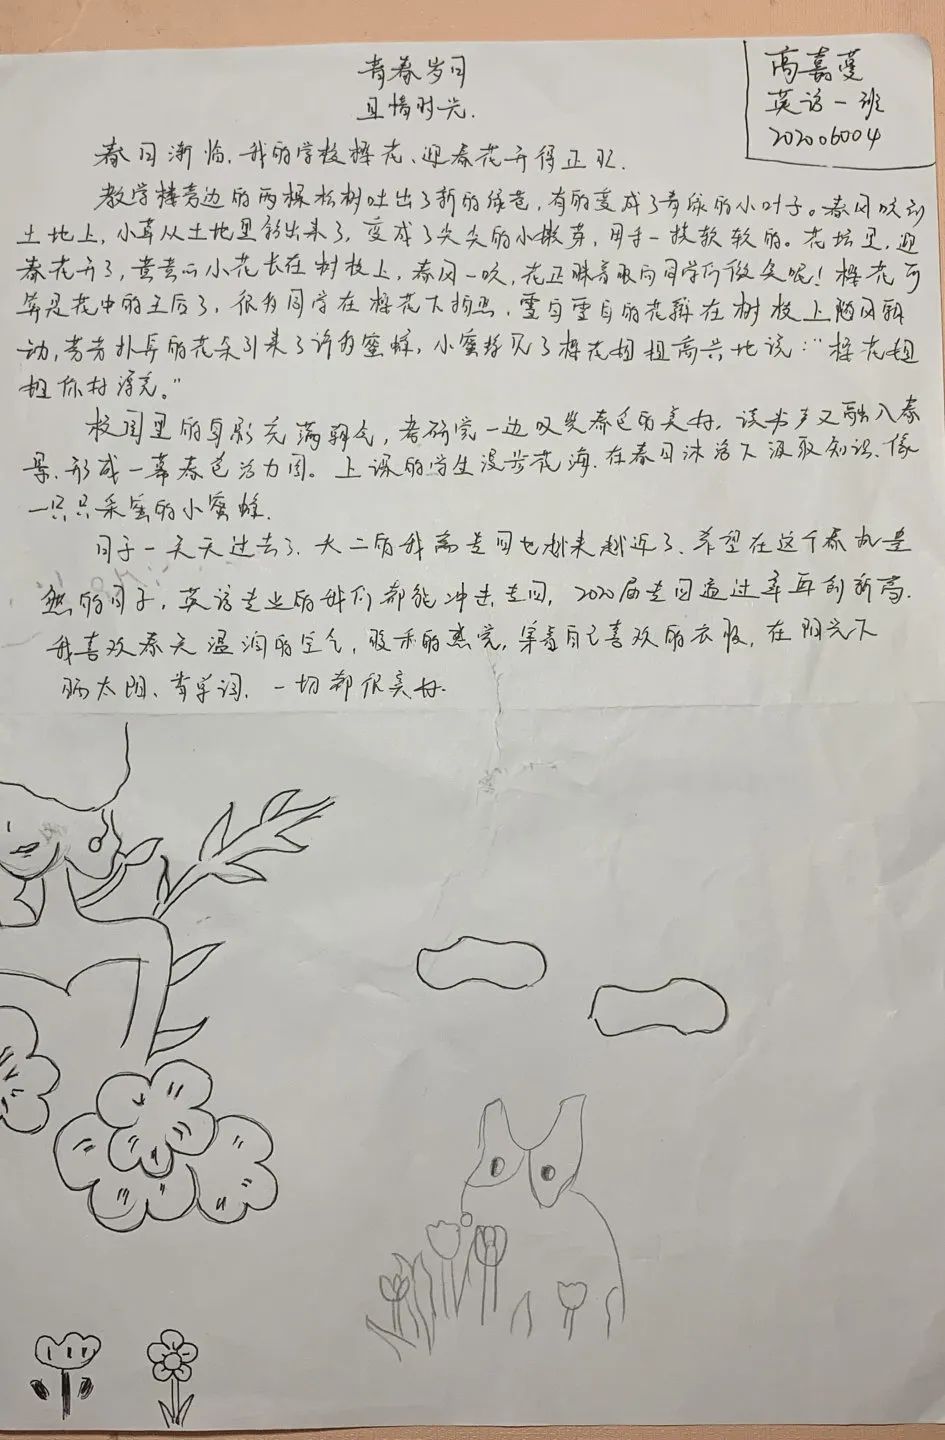 青春岁月
且惜时光.
高嘉蔓
英语一班
202006004
春日渐临.我的学校樱花、迎春花开得正欢.
教学楼旁边的两棵松树吐出了新的绿苞,有的变成了青绿的小叶子。春风吹到
土地上,小草从土地里钻出来了,变成了尖尖的小嫩芽,用手一拔软软的。花坛里,迎
春花开了,黄黄的小花长在树枝上,春风一吹,花正眯着眼向同学们微笑呢!樱花可
算是花中的王后了,很多同学在樱花下拍照,雪白雪白的花瓣在树枝上随风飘
动,芳芳扑鼻的花朵引来了许多蜜蜂,小蜜蜂见了樱花姐姐高兴地说:“樱花姐
姐你好漂亮。”
校园里的身影充满朝气,考研党一边叹赏春色的美好,读书声又融入春
景.形成一幕春色活力图。上课的学生漫步花海.在春日沐浴下汲取知识.像
一只只采蜜的小蜜蜂.
日子一天天过去了.大二的我离专四也越来越近了.希望在这个春机盎
然的日子,英语专业的我们都能冲击专四,2020届专四通过率再创新高.
我喜欢春天温润的空气,暖和的感觉,穿着自己喜欢的衣服,在阳光下
晒太阳、背单词.一切都很美好.